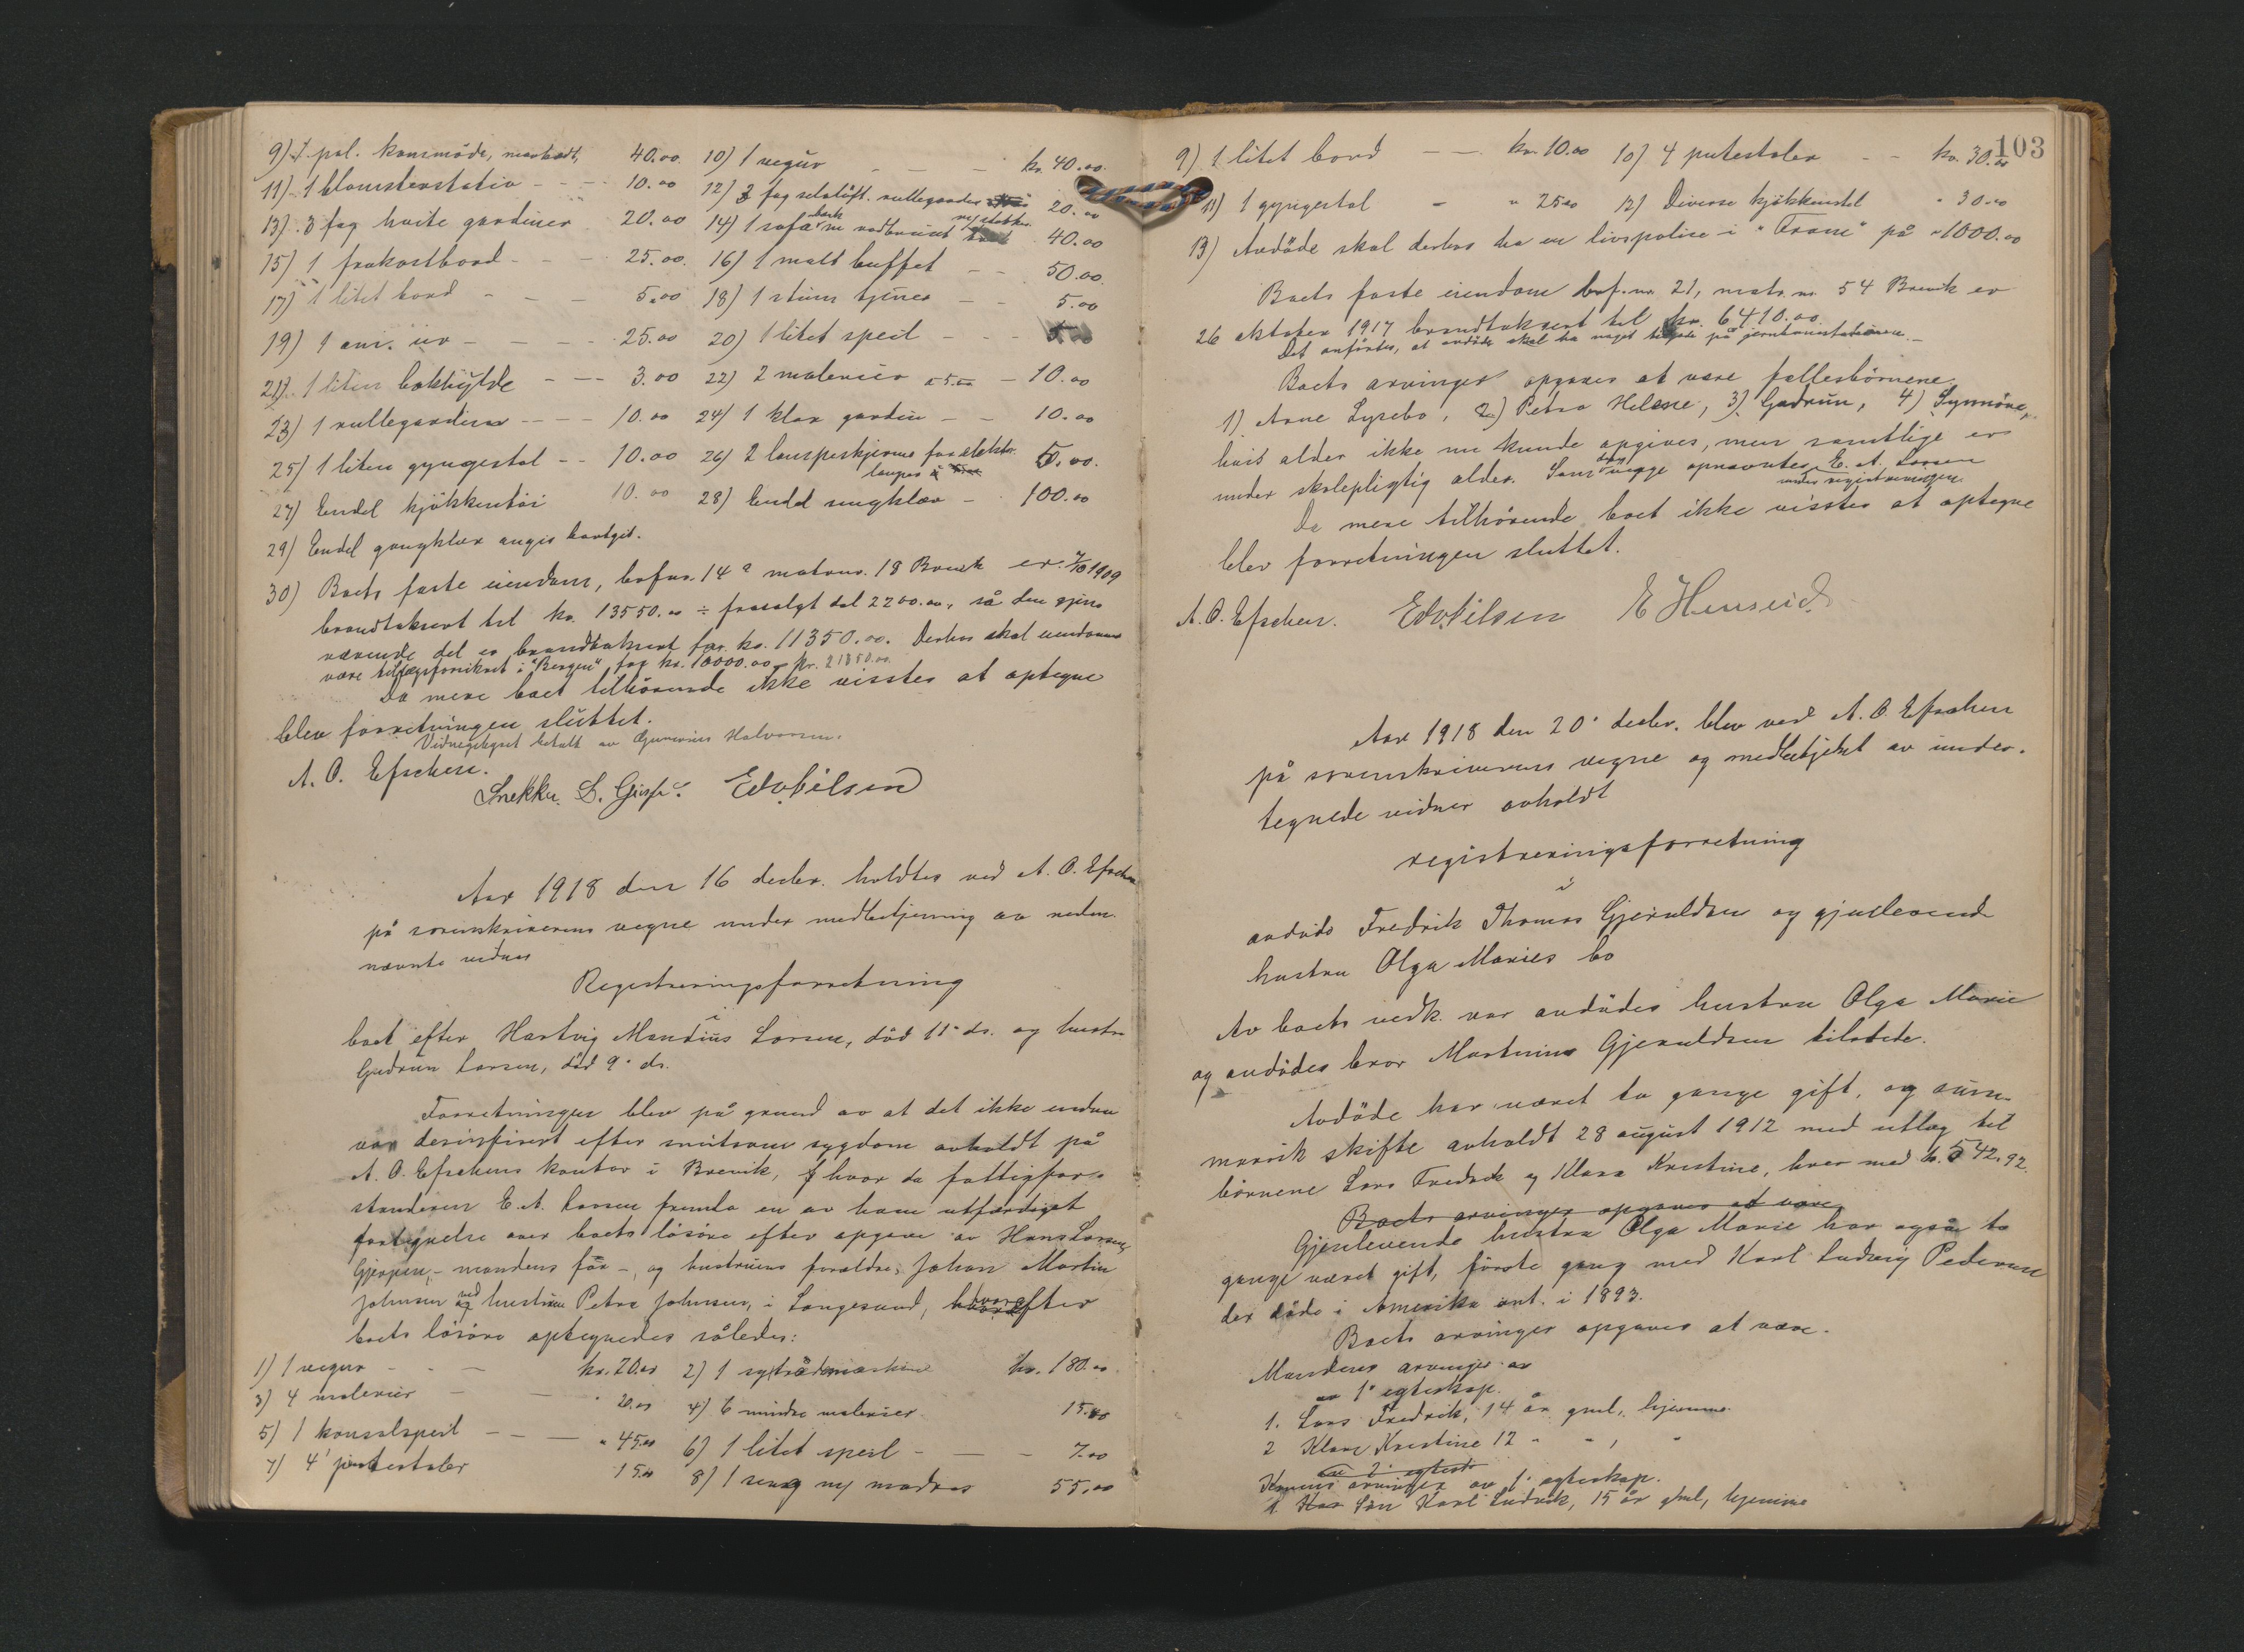 9) 1 pol. konsmöde, 40.00 10) 1 vegur kr. 40.00
11) 1 blomsterstativ 10.00 12) 3 fag rullegardin 20.00
13) 3 fag hvite gardiner 20.00 14) 1 sofa m rødbrunt 40.00
15) 1 frokostbord 25.00 16) 1 malt buffet 50.00
17) 1 litet bord 5.00 18) 1 stum tjener 5.00
19) 1 am. ur 25.00 20) 1 litet speil
21) 1 liten bokhylde 3.00 22) 2 malerier a 5.00 10.00
23) 1 rullegardin 10.00 24) 1 klar gardin 10.00
25) 1 liten gyngestol 10.00 26) 2 lampeskjerme for elektr. lamper 5.00
27) Endel kjökkentöi 10.00 28) Endel sengklær 100.00
29) Endel gangklær angis bortgit.
30) Boets faste eiendom, bofnr. 14a matrnr. 18 Brevik er 7/10 1909
brandtaksert til kr. 13550.00 ÷ frasolgt del 2200.00, så den gjen-
værende del er brandtaksert for kr. 11350.00. Derhos skal eiendommen
være tillægsforsikret i "Bergen" for kr. 10000.00 kr. 21350.00
Da mere boet tilhörende ikke visstes at optegne
blev forretningen sluttet.
Vidnegebyret betalt av Gunerius Halvorsen.
A. O. Efschen.
Snekker D. Edv Nilsen
Aar 1918 den 16 decbr. holdtes ved A. O. Efschen
på sorenskriverens vegne under medbetjening av neden-
nævnte vidner
Registreringsforretning
i
boet efter Hartvig Mandius Larsen, död 11' ds. og hustru
Gudrun Larsen, död 9' ds.
Forretningen blev på grund av at det ikke endnu
var desinfisert efter smitsom sygdom avholdt på
A. O. Efschens kontor i Brevik, hvor da fattigfor-
standeren E. A. Larsen fremla en av ham utfærdiget
fortegnelse over boets lösöre efter opgave av Hans Larsen,
Gjerpen, - mandens far -, og hustruens forældre, Johan Martin
Johnsen ved hustru Petra Johnsen, i Langesund, hvorefter
boets lösöre optegnedes således:
1) 1 vegur kr. 20.00 2) 1 symaskine kr. 180.00
3) 4 malerier " 20.00 4) 6 mindre malerier 15.00
5) 1 konsolspeil " 45.00 6) 1 litet speil 7.00
7) 4 putestoler 15.00 8) 1 seng m/ madras 55.00
103
9) 1 litet bord kr. 10.00 10) 4 putestoler kr. 30.00
11) 1 gyngestol " 25.00 12) Diverse kjökkenstel " 30.00
13) Avdöde skal derhos ha en livspolice i "Fram" på " 1000.00
Boets faste eiendom bof.nr. 21, matr.nr. 54 Brevik er
26 oktober 1917 brandtaksert til kr. 6410.00.
Det anförtes, at avdöde skal ha noget tilgode på jernbanestationen.
Boets arvinger opgaves at være fællesbörnene
1) Arne Lysebo, 2) Petra Helene, 3) Gudrun, 4) Synnöve,
hvis alder ikke nu kunde opgives, men samtlige er
under skolepligtig alder. Som opnævntes E. A. Larsen
under registreringen.
Da mere tilhörende boet ikke visstes at optegne
blev forretningen sluttet.
A. O. Efschen. Edv Nilsen E Henseid
Aar 1918 den 20' decbr. blev ved A. O. Efschen
på sorenskriverens vegne og medbetjent av under-
tegnede vidner avholdt
registreringsforretning
i
avdöde Fredrik Thomas Gjeruldsen og gjenlevende
hustru Olga Maries bo
Av boets vedk. var avdödes hustru Olga Marie
og avdödes bror Martinius Gjeruldsen tilstede.
Avdöde har været to gange gift, og
skifte avholdt 28 august 1912 med utlæg til
börnene Lars Fredrik og Klara Kristine, hver med kr. 542.92.
Boets arvinger opgaves at være
Gjenlevende hustru Olga Marie har også to
gange været gift, förste gang med Karl Ludvig Pedersen
der döde i Amerika ant. i 1893.
Boets arvinger opgaves at være.
Mandens arvinger av
1' egteskap.
1. Lars Fredrik, 14 år gml., hjemme
2 Klara Kristine 12 " " , "
av 2' egtesk
Konens arvinger av 1' egteskap.
1. Sön Karl Ludvik, 15 år gml, hjemme